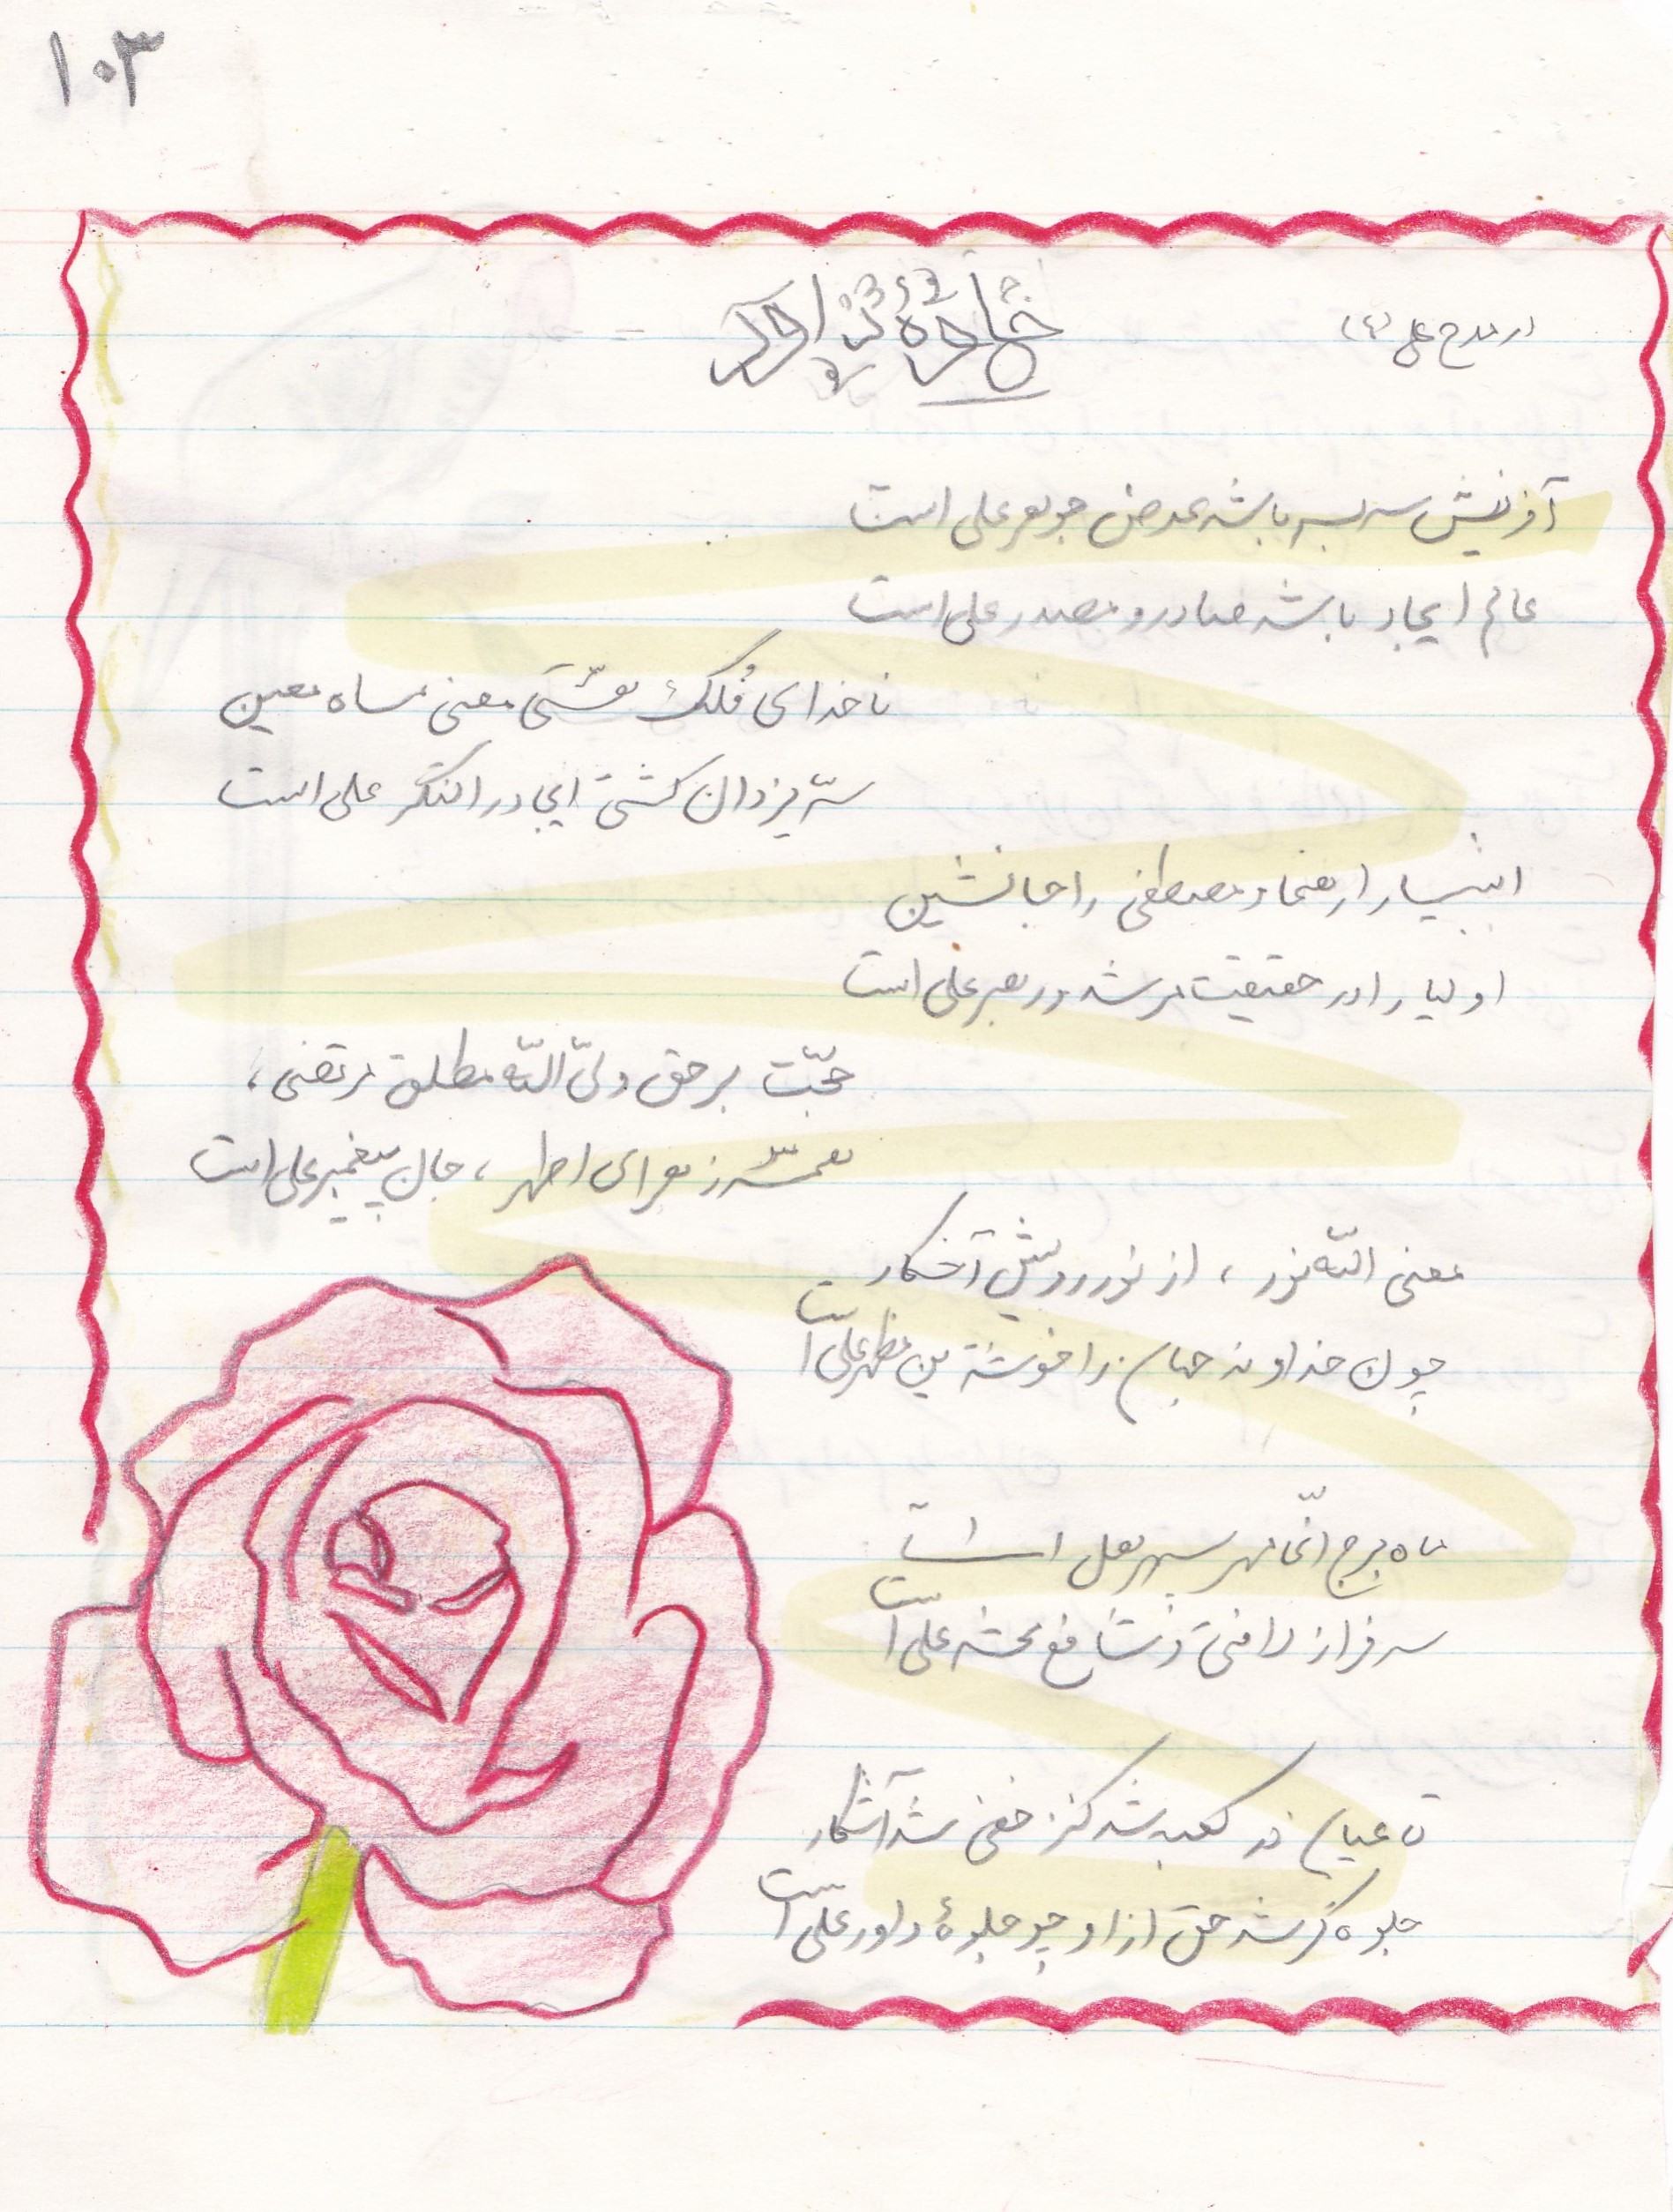 ۱۰۳
در مدح علی (ع)
جلوه داور
آفرینش سر بسر باشد عرض جوهر علی است
عالم ایجاد باشد صادر و مصدر علی است
ناخدای فُلک هستی معنی ماه معین
سرّ یزدان کشتی ایجاد را لنگر علی است
انبیا را رهنما و مصطفی را جانشین
اولیا را در حقیقت مرشد و رهبر علی است
حجّت بر حق ولیّ اللّه مطلق مرتضی،
همسّر زهرای اطهر، جان پیغمبر علی است
معنی اللّه نور، از نور رویش آشکار
چون خداوند جهان را خوشترین مظهر علی است
ماه برج انّما مهر سپهر هل است
سرفراز لافتی و شافع محشر علی است
تا عیان در کعبه شد کنز خفی شد آشکار
جلوه گر شد حق از او چو جلوهٔ داور علی است